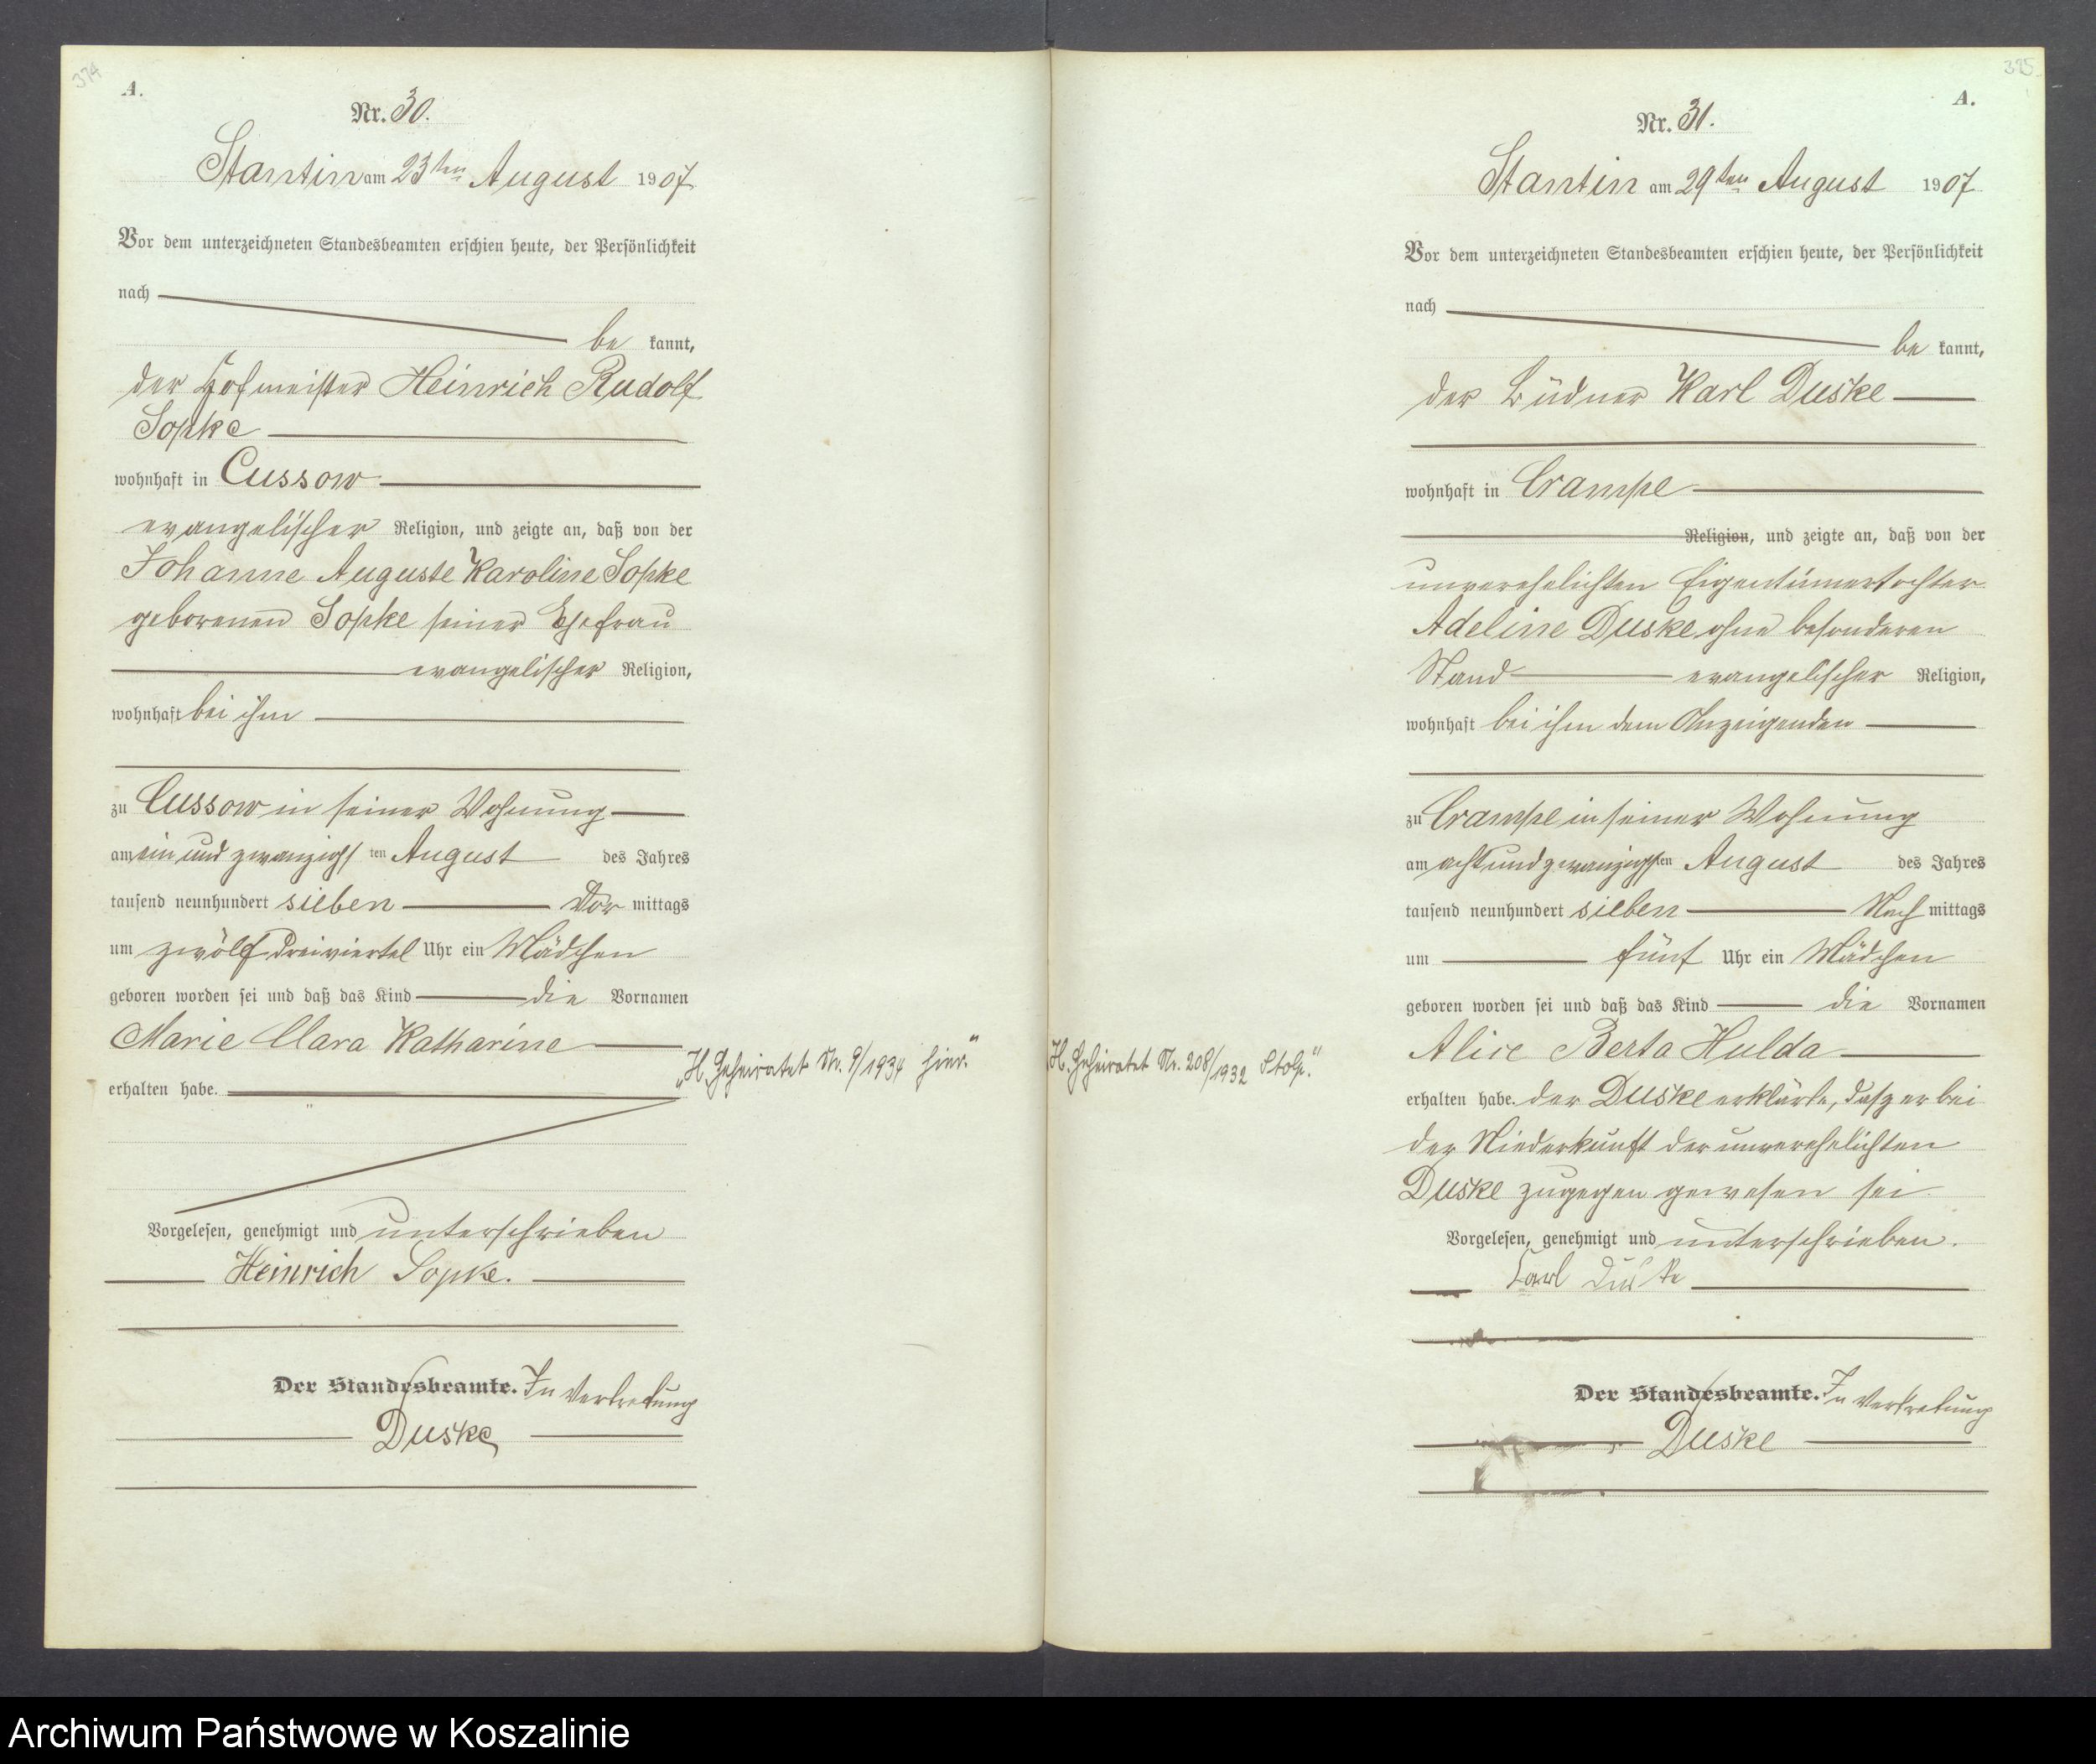 374
A.
Nr. 30.
Stantin am 23ten August 1907
Vor dem unterzeichneten Standesbeamten erschien heute, der Persönlichkeit
nach
be kannt,
der Hofmeister Heinrich Rudolf
Sopke
wohnhaft in Cussow
evangelischer Religion, und zeigte an, daß von der
Johanne Auguste Karoline Sopke
geborenen Sopke seiner Ehefrau
evangelischer Religion,
wohnhaft bei ihm
zu Cussow in seiner Wohnung
am ein und zwanzigsten August des Jahres
tausend neunhundert sieben Vor mittags
um zwölf dreiviertel Uhr ein Mädchen
geboren worden sei und daß das Kind die Vornamen
Marie Clara Katharine
erhalten habe.
„H. Geheiratet Nr. 9/1934 hier."
Vorgelesen, genehmigt und unterschrieben
Heinrich Sopke.
Der Standesbeamte. In Vertretung
Duske
395
A.
Nr. 31.
Stantin am 29ten August 1907
Vor dem unterzeichneten Standesbeamten erschien heute, der Persönlichkeit
nach
be kannt,
der Büdner Karl Duske
wohnhaft in Crampe
Religion, und zeigte an, daß von der
unverehelichten Eigentümertochter
Adeline Duske ohne besonderen
Stand evangelischer Religion,
wohnhaft bei ihm dem Anzeigenden
zu Crampe in seiner Wohnung
am acht und zwanzigsten August des Jahres
tausend neunhundert sieben Nach mittags
um fünf Uhr ein Mädchen
geboren worden sei und daß das Kind die Vornamen
Alice Berta Hulda
H. Geheiratet Nr. 208/1932 Stolp."
erhalten habe. der Duske erklärte, dasz er bei
der Niederkunft der unverehelichten
Duske zugegen gewesen sei.
Vorgelesen, genehmigt und unterschrieben.
Karl Duske
Der Standesbeamte. In Vertretung
Duske
Archiwum Państwowe w Koszalinie